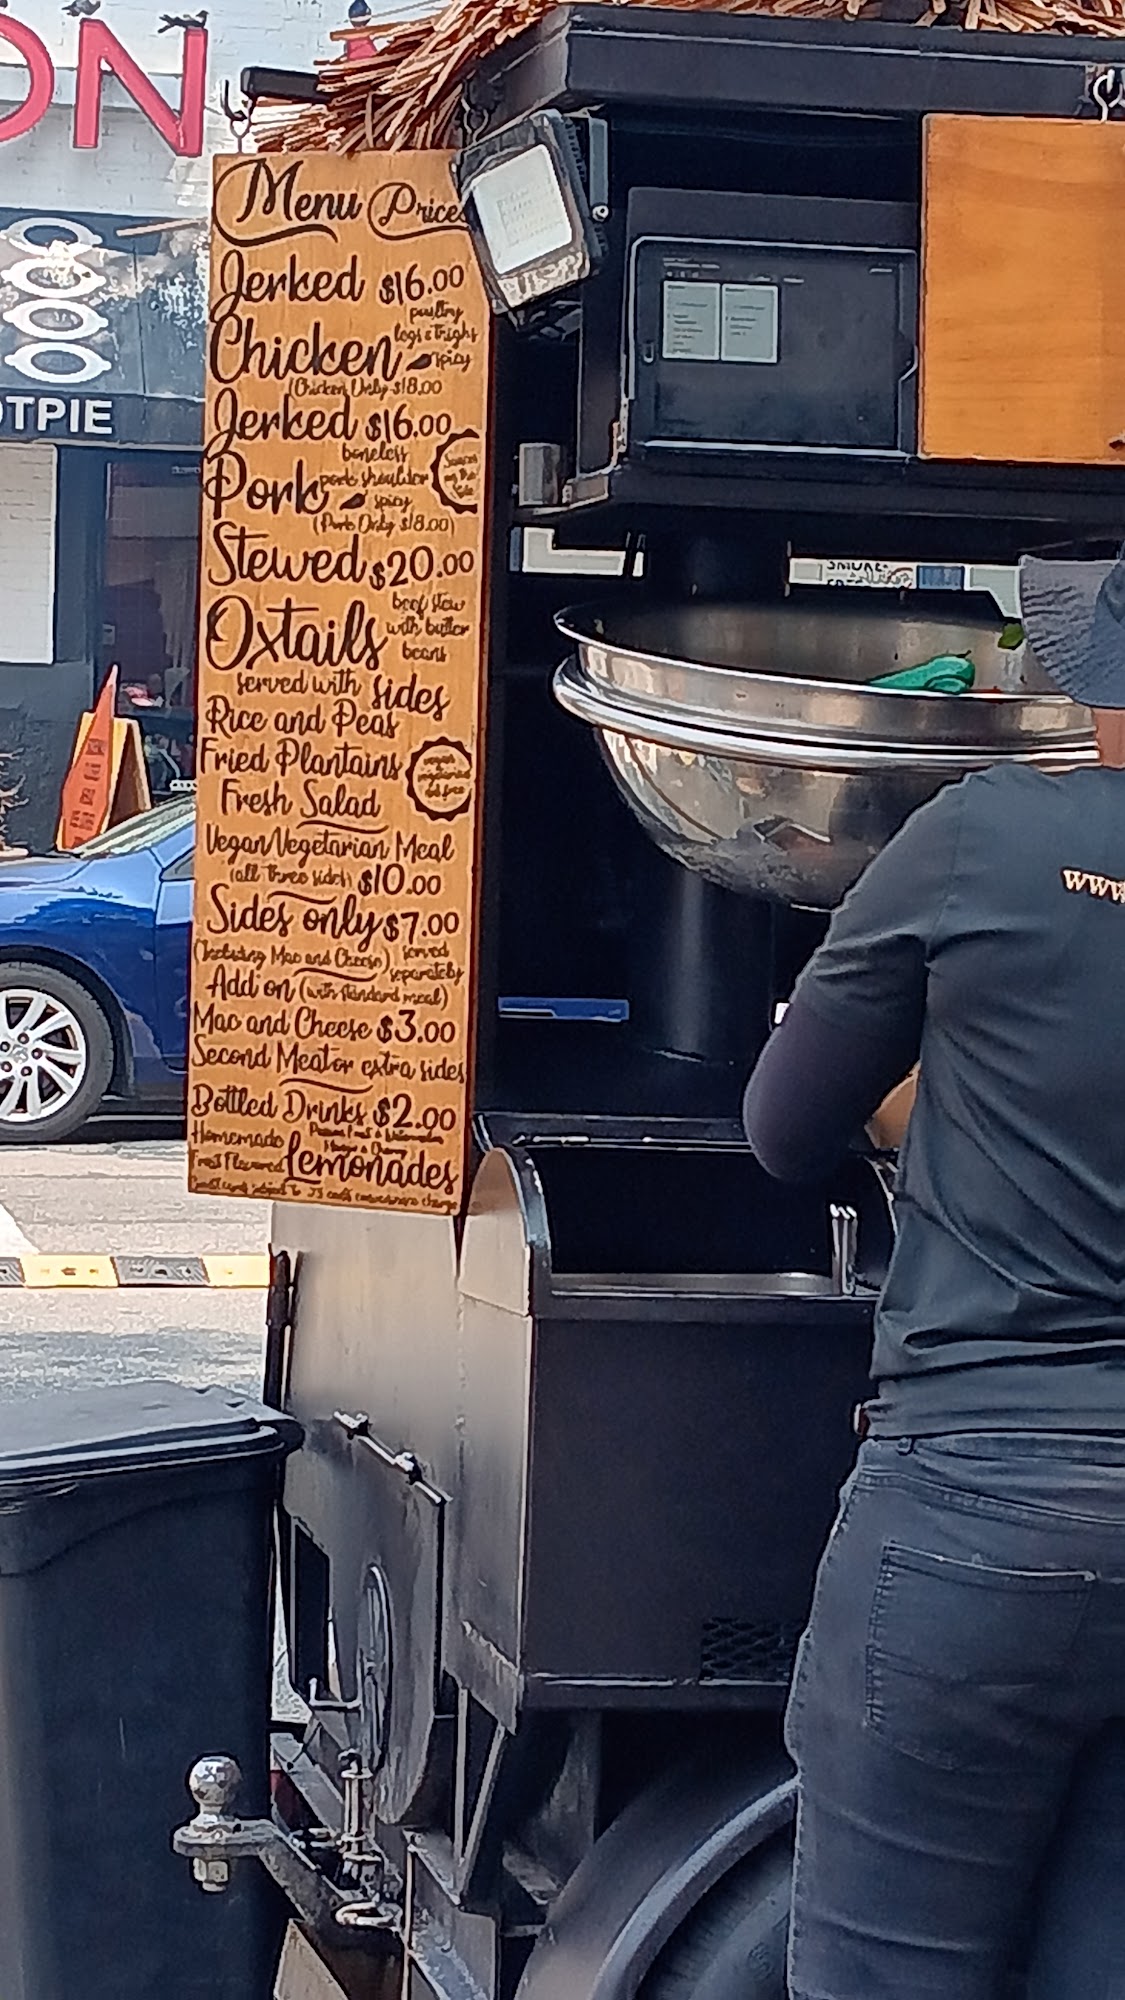 ON
OTPIE
Menu Prices
Jerked $16.00
poultry
legs & thighs
Chicken spicy
(Chicken Only $18.00
Jerked $16.00
boneless
Pork pork shoulder
spicy
(Pork Only $18.00)
Sauces
on the
Side
Stewed $20.00
beef stew
Oxtails with butter
beans
served with sides
Rice and Peas
Fried Plantains
vegan
vegetarian
Fresh Salad
Vegan/Vegetarian Meal
(all three sides) $10.00
Sides only $7.00
(Including Mac and Cheese) served
separately
Add on (with standard meal)
Mac and Cheese $3.00
Second Meat or extra sides
Bottled Drinks $2.00
Homemade
Fruit Flavored Lemonades
www